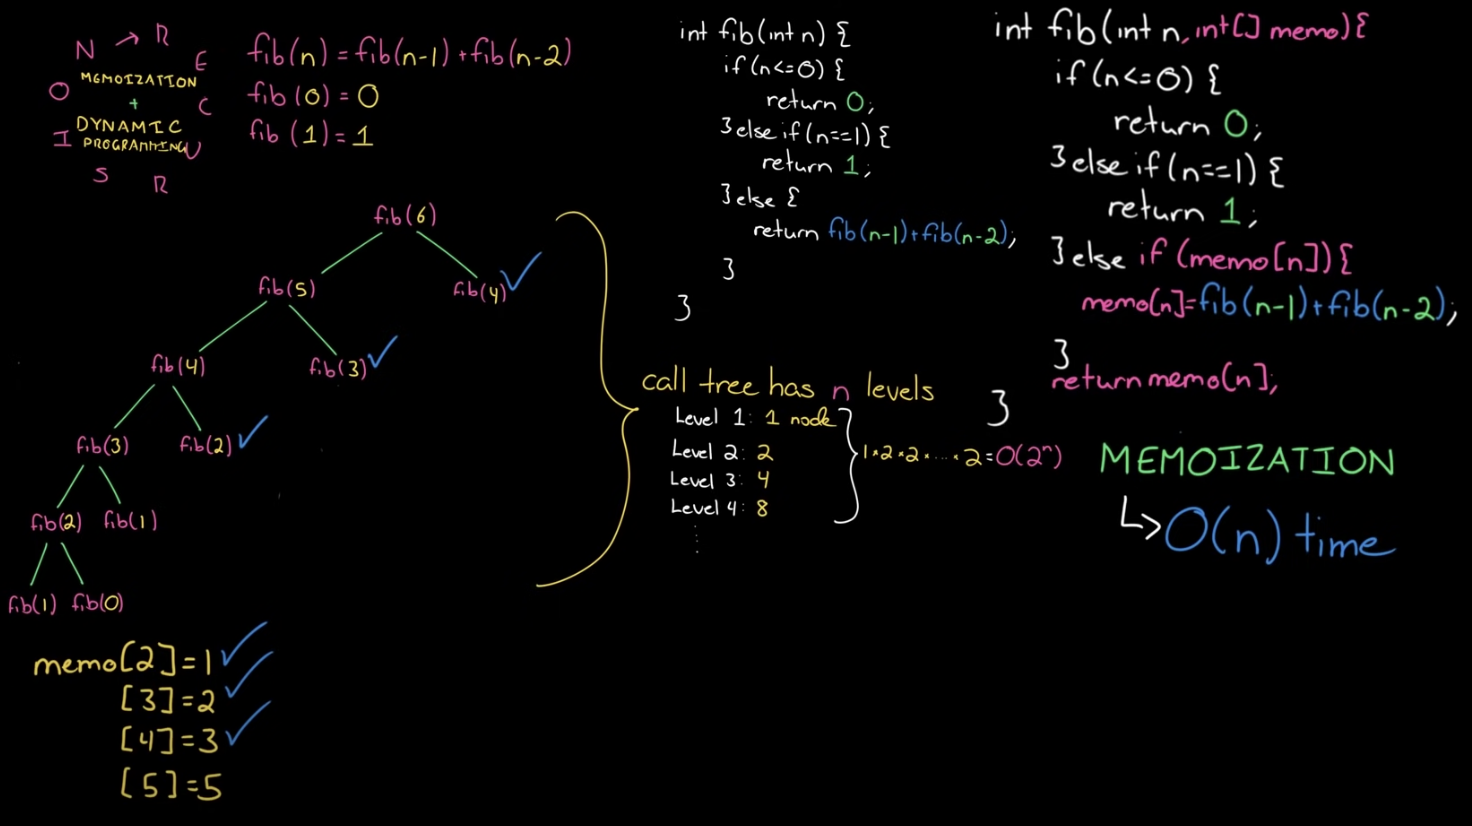 RECURSION
MEMOIZATION
+
DYNAMIC
PROGRAMMING
fib(n) = fib(n-1) + fib(n-2)
fib(0) = 0
fib(1) = 1
fib(6)
fib(5) fib(4)
fib(4) fib(3)
fib(3) fib(2)
fib(2) fib(1)
fib(1) fib(0)
memo[2]=1
[3]=2
[4]=3
[5]=5
int fib(int n) {
if(n<=0) {
return 0;
}else if(n==1) {
return 1;
}else {
return fib(n-1)+fib(n-2);
}
}
call tree has n levels
Level 1: 1 node
Level 2: 2
Level 3: 4
Level 4: 8
1*2*2*....*2=O(2ⁿ)
int fib(int n, int[] memo){
if(n<=0) {
return 0;
}else if(n==1) {
return 1;
}else if (memo[n]){
memo[n]=fib(n-1)+fib(n-2);
}
return memo[n];
}
MEMOIZATION
O(n) time